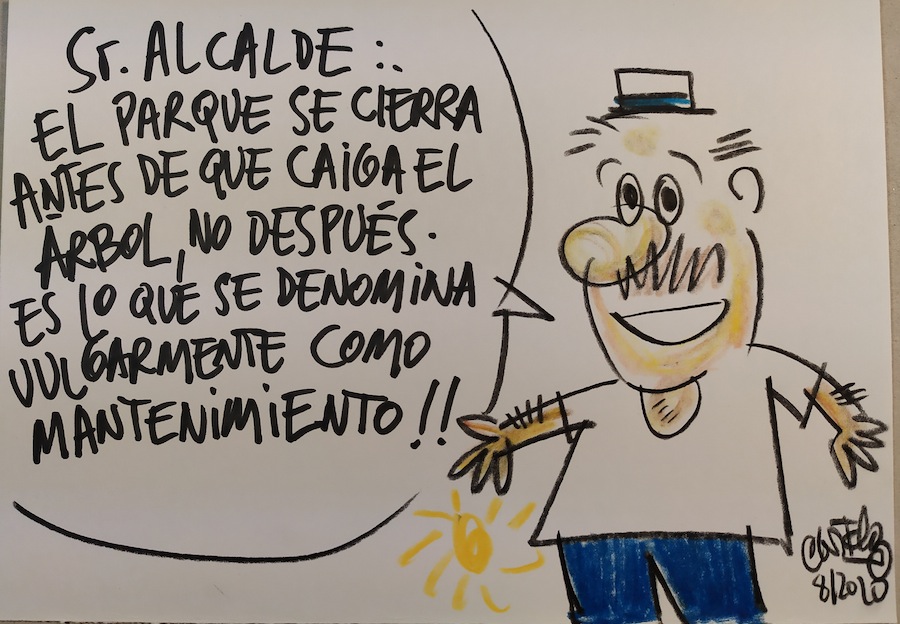 Sr. ALCALDE:.
EL PARQUE SE CIERRA
ANTES DE QUE CAIGA EL
ÁRBOL, NO DESPUÉS.
ES LO QUE SE DENOMINA
VULGARMENTE COMO
MANTENIMIENTO!!
8/2020